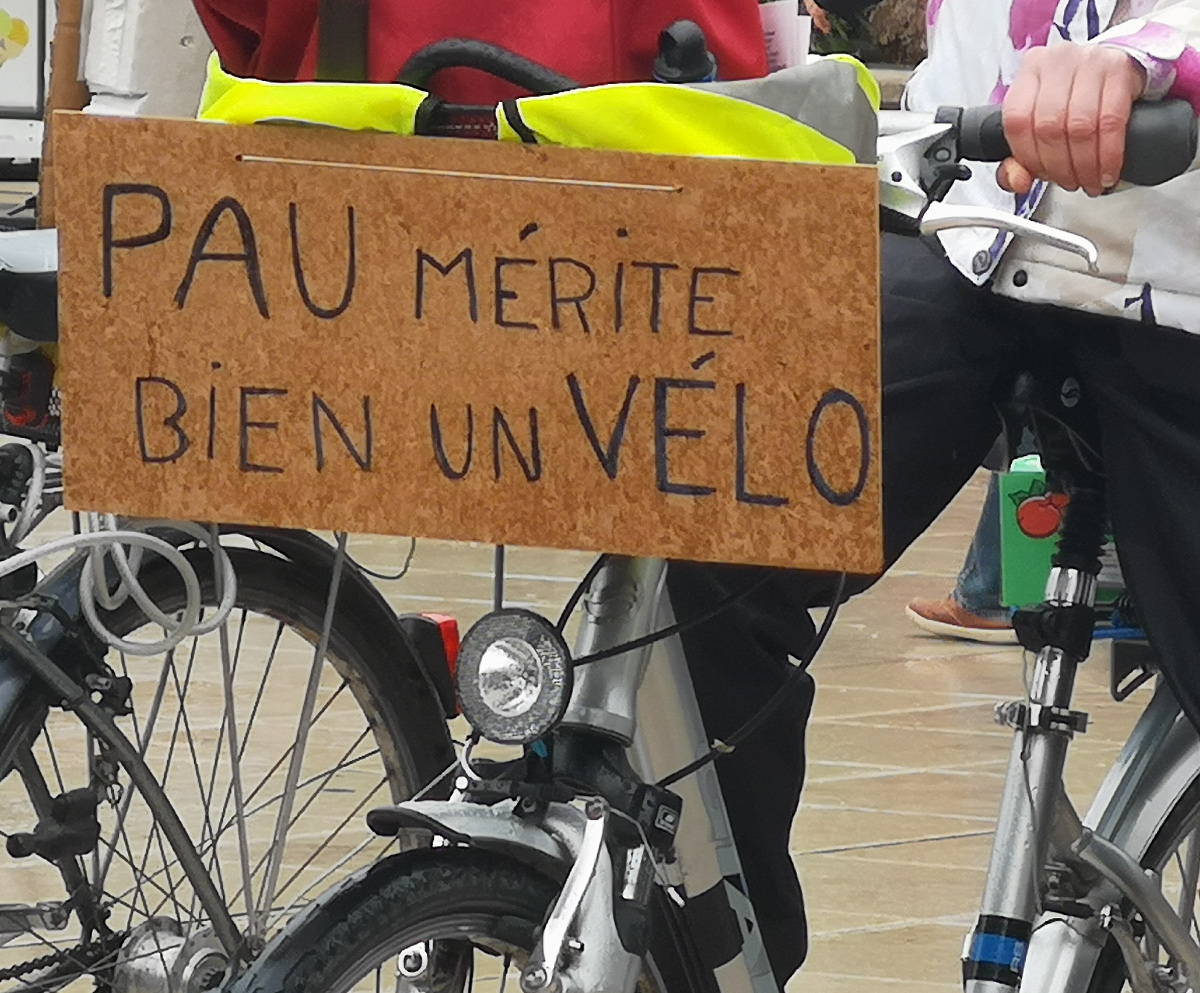 PAU MÉRITE
BIEN UN VÉLO